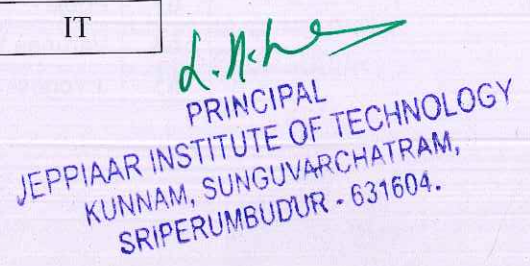 IT
PRINCIPAL
JEPPIAAR INSTITUTE OF TECHNOLOGY
KUNNAM, SUNGUVARCHATRAM,
SRIPERUMBUDUR - 631604.